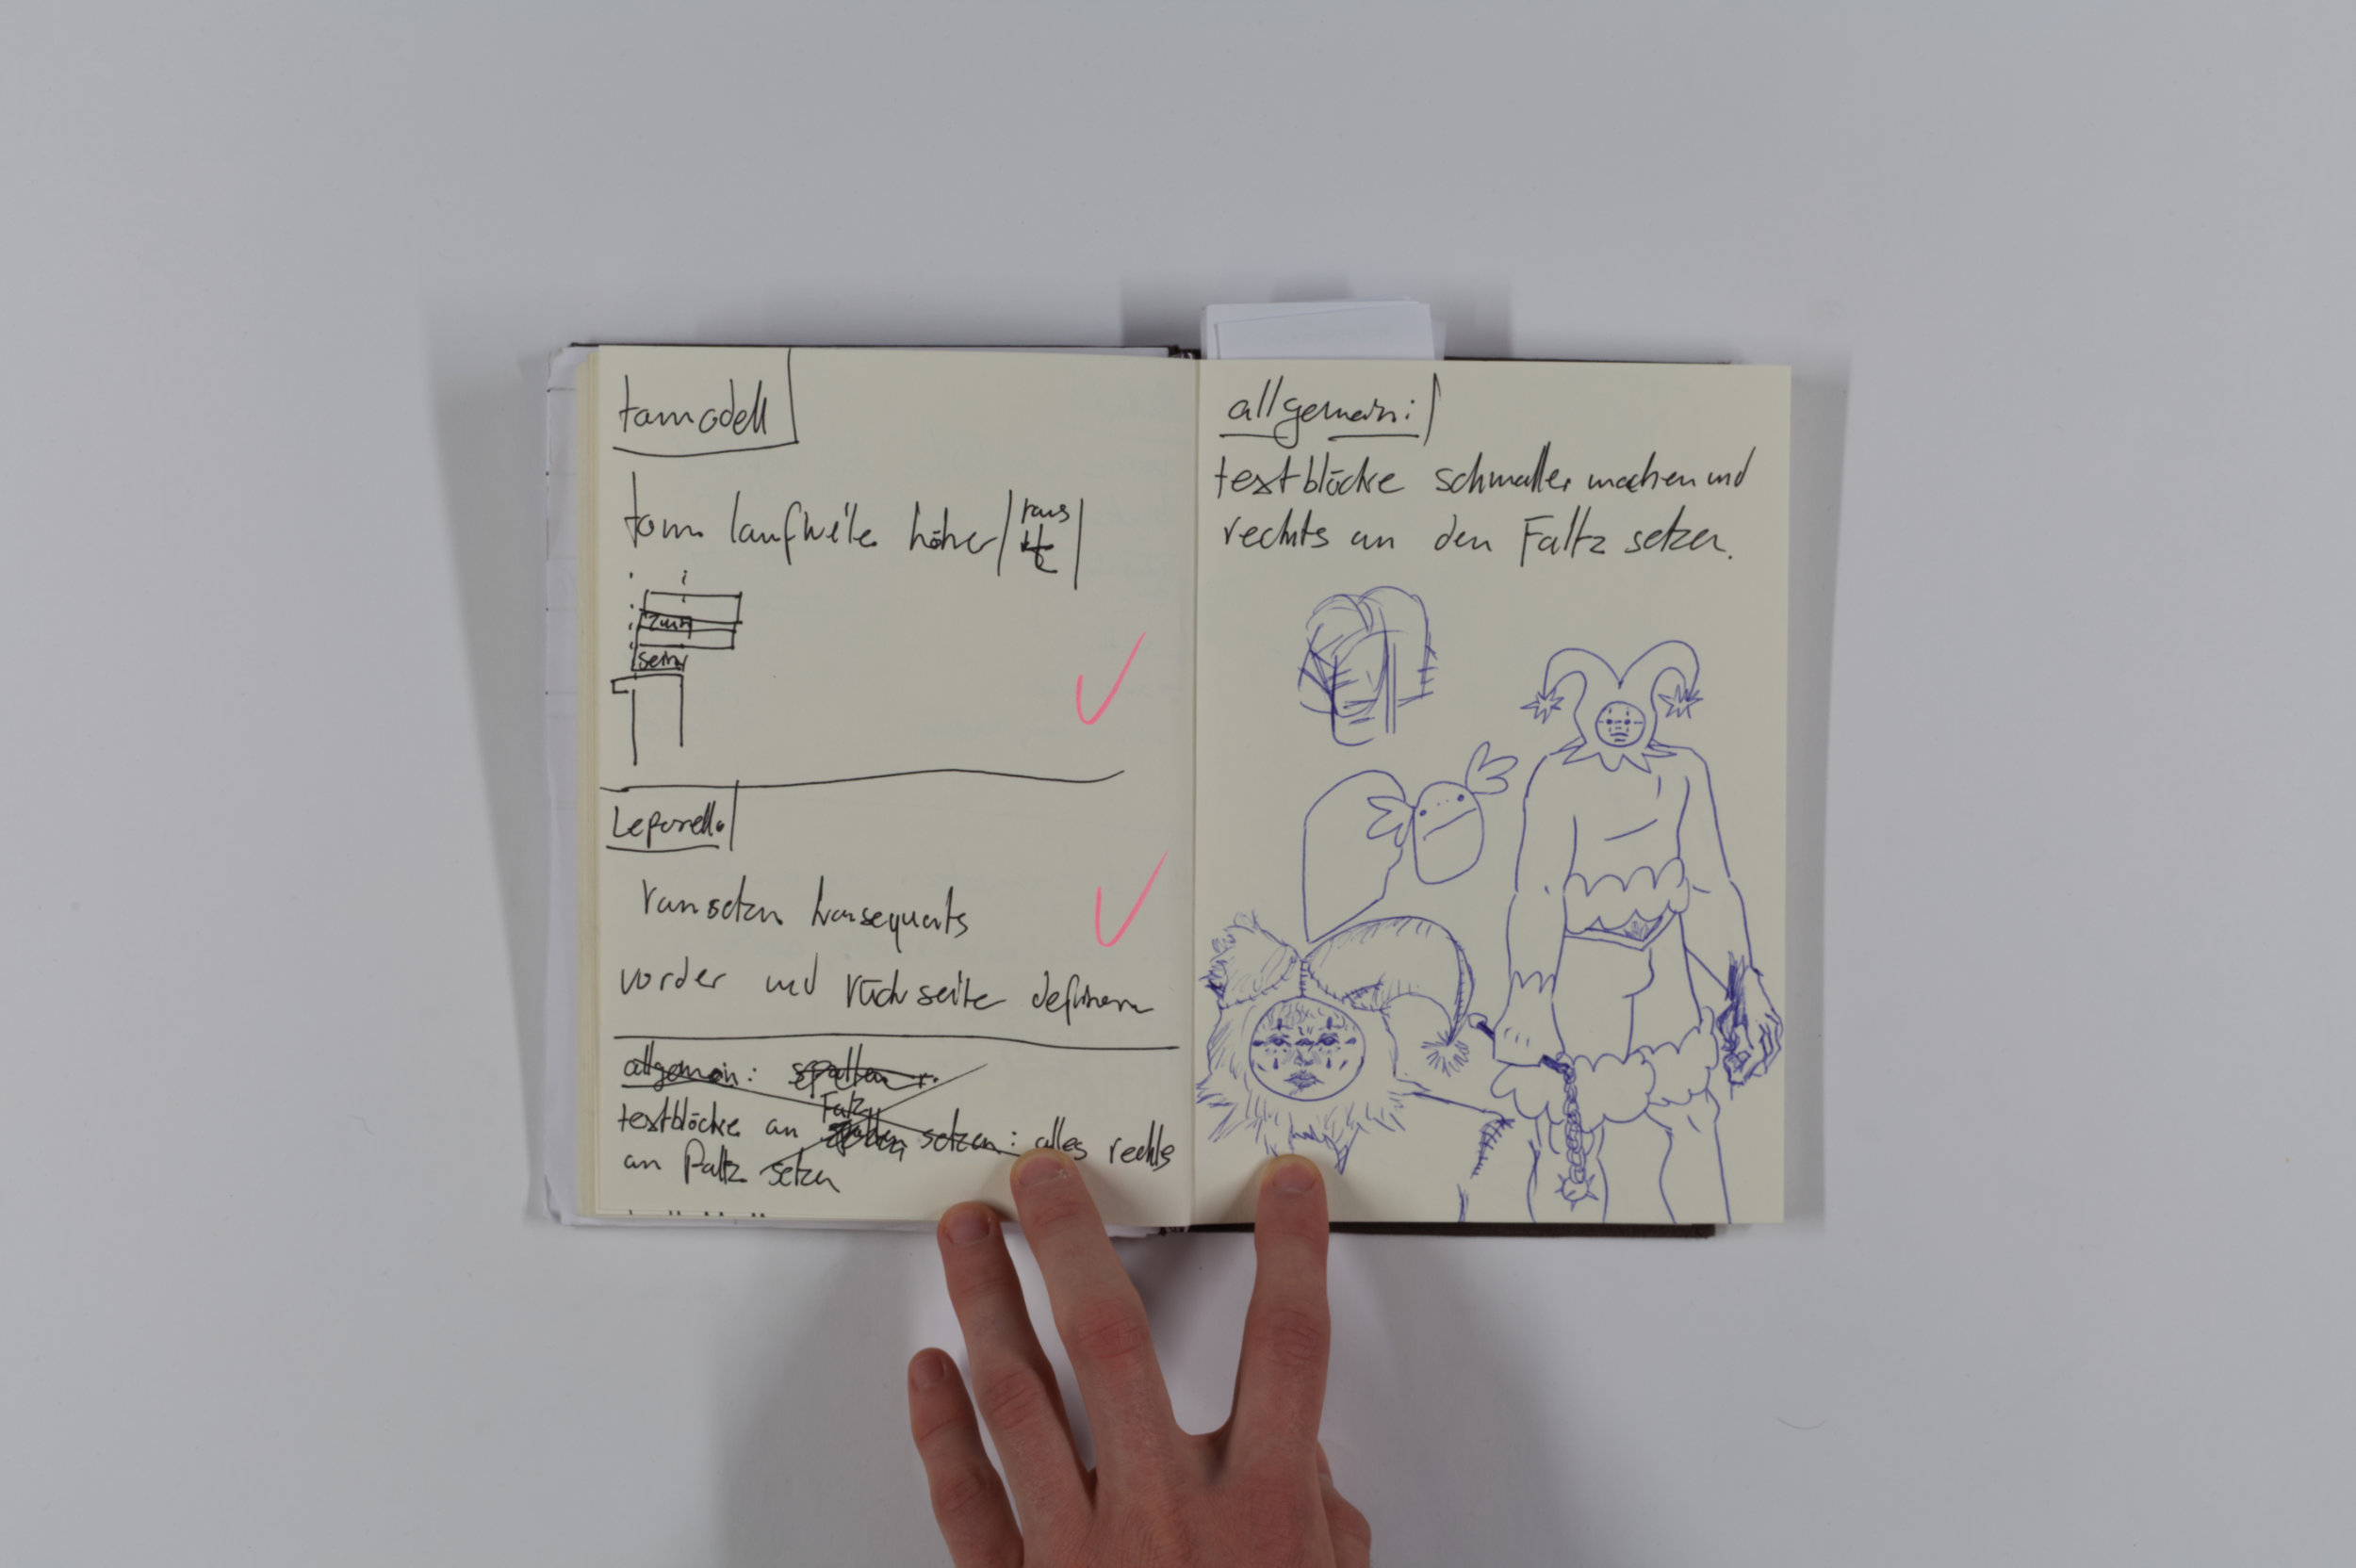 tamodell
tom laufweite höher raus
2mm
seite
Leporello
ransetzen konsequents
vorder und rückseite definieren
allgemein: spalten
Faltz
textblöcke an setzen: alles rechts
an Faltz setzen
allgemein:
textblöcke schmaller machen und
rechts an den Faltz setzen.